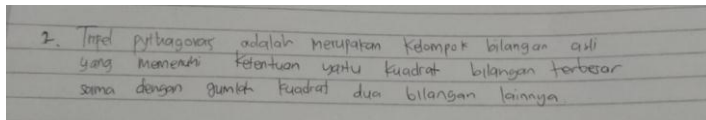 2. Tripel pythagoras adalah merupakan kelompok bilangan asli
yang memenuhi ketentuan yaitu kuadrat bilangan terbesar
sama dengan jumlah kuadrat dua bilangan lainnya